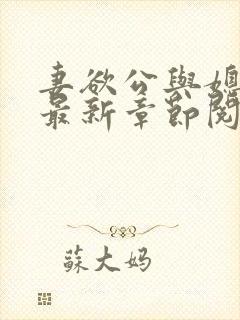 妻欲公與媳
最新章節閱
蘇大妈